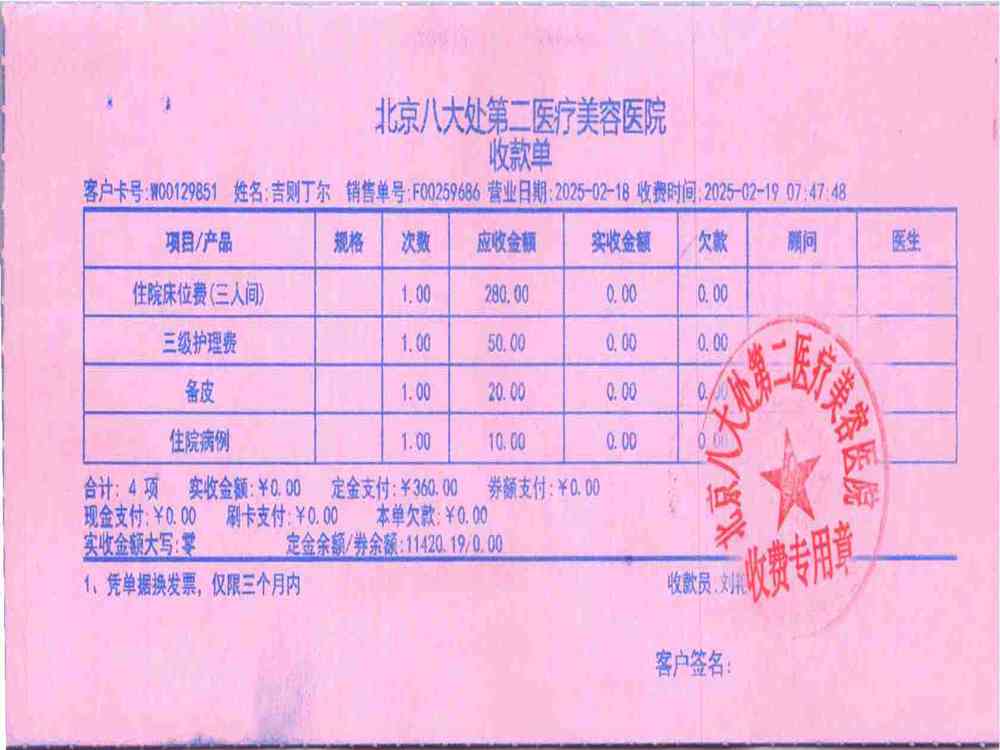 北京八大处第二医疗美容医院
收款单
客户卡号:WC0129851 姓名:吉则丁尔 销售单号:F00259686 营业日期:2025-02-18 收费时间:2025-02-19 07:47:48
项目/产品 规格 次数 应收金额 实收金额 欠款 顾问 医生
住院床位费(三人间) 1.00 280.00 0.00 0.00
三级护理费 1.00 50.00 0.00 0.00
备皮 1.00 20.00 0.00 0.00
住院病例 1.00 10.00 0.00 0.00
合计: 4 项 实收金额:¥0.00 定金支付:¥360.00 券额支付:¥0.00
现金支付:¥0.00 刷卡支付:¥0.00 本单欠款:¥0.00
实收金额大写:零 定金余额/券余额:11420.19/0.00
1、凭单据换发票，仅限三个月内 收款员:刘
客户签名:
北京八大处第二医疗美容医院
收费专用章